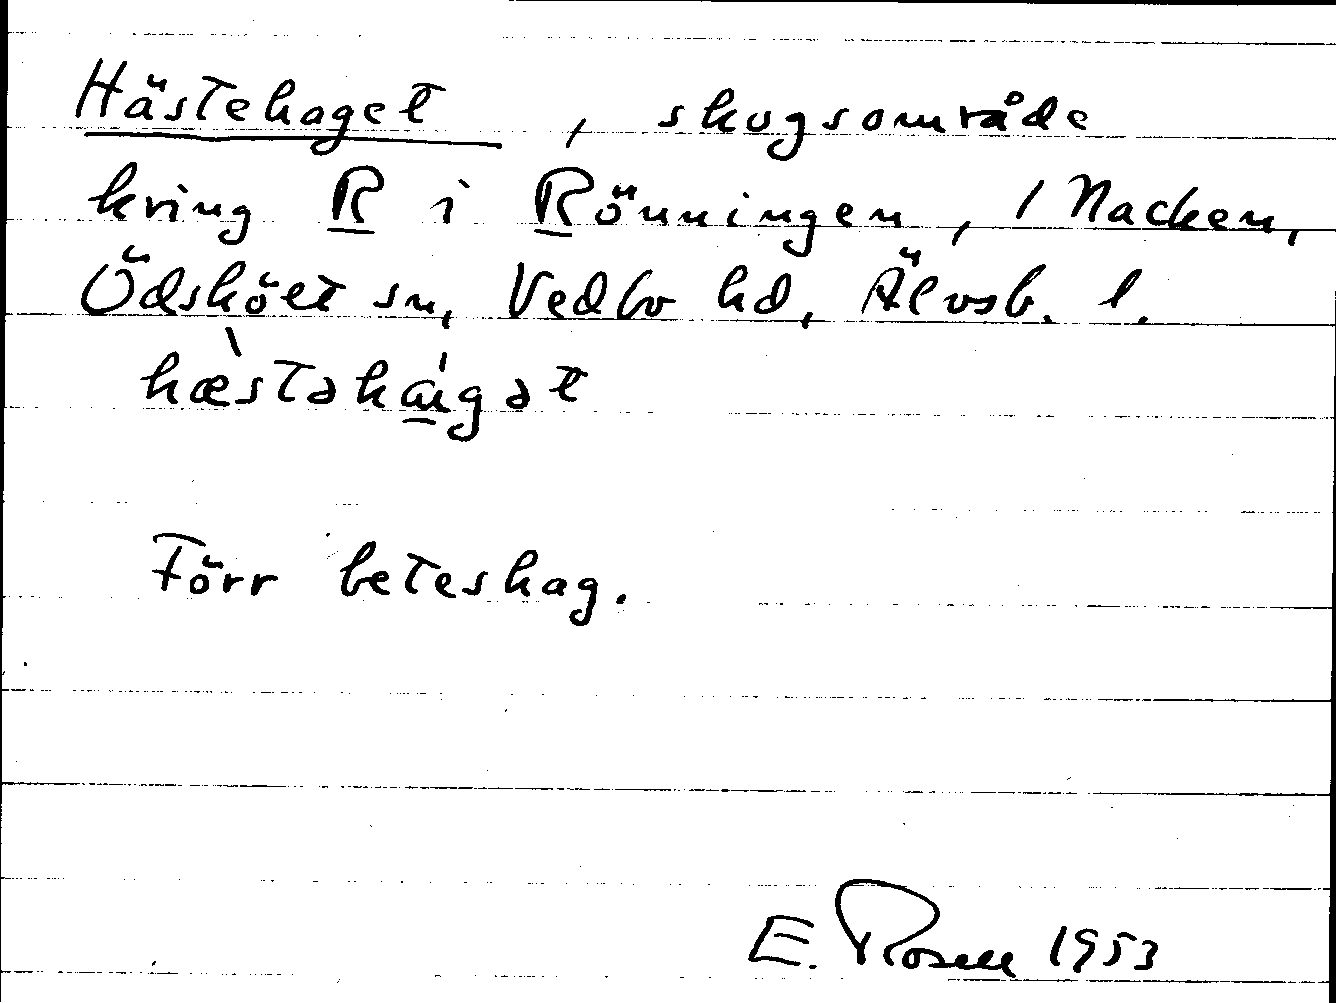 Hästehaget, skogsområde
kring R i Rönningen, 1 Nacken,
Ödsköet sn, Vedbo hd, Älvsb. l.
hæ̀stəhágət
Förr beteshag.
E. Rosell 1953